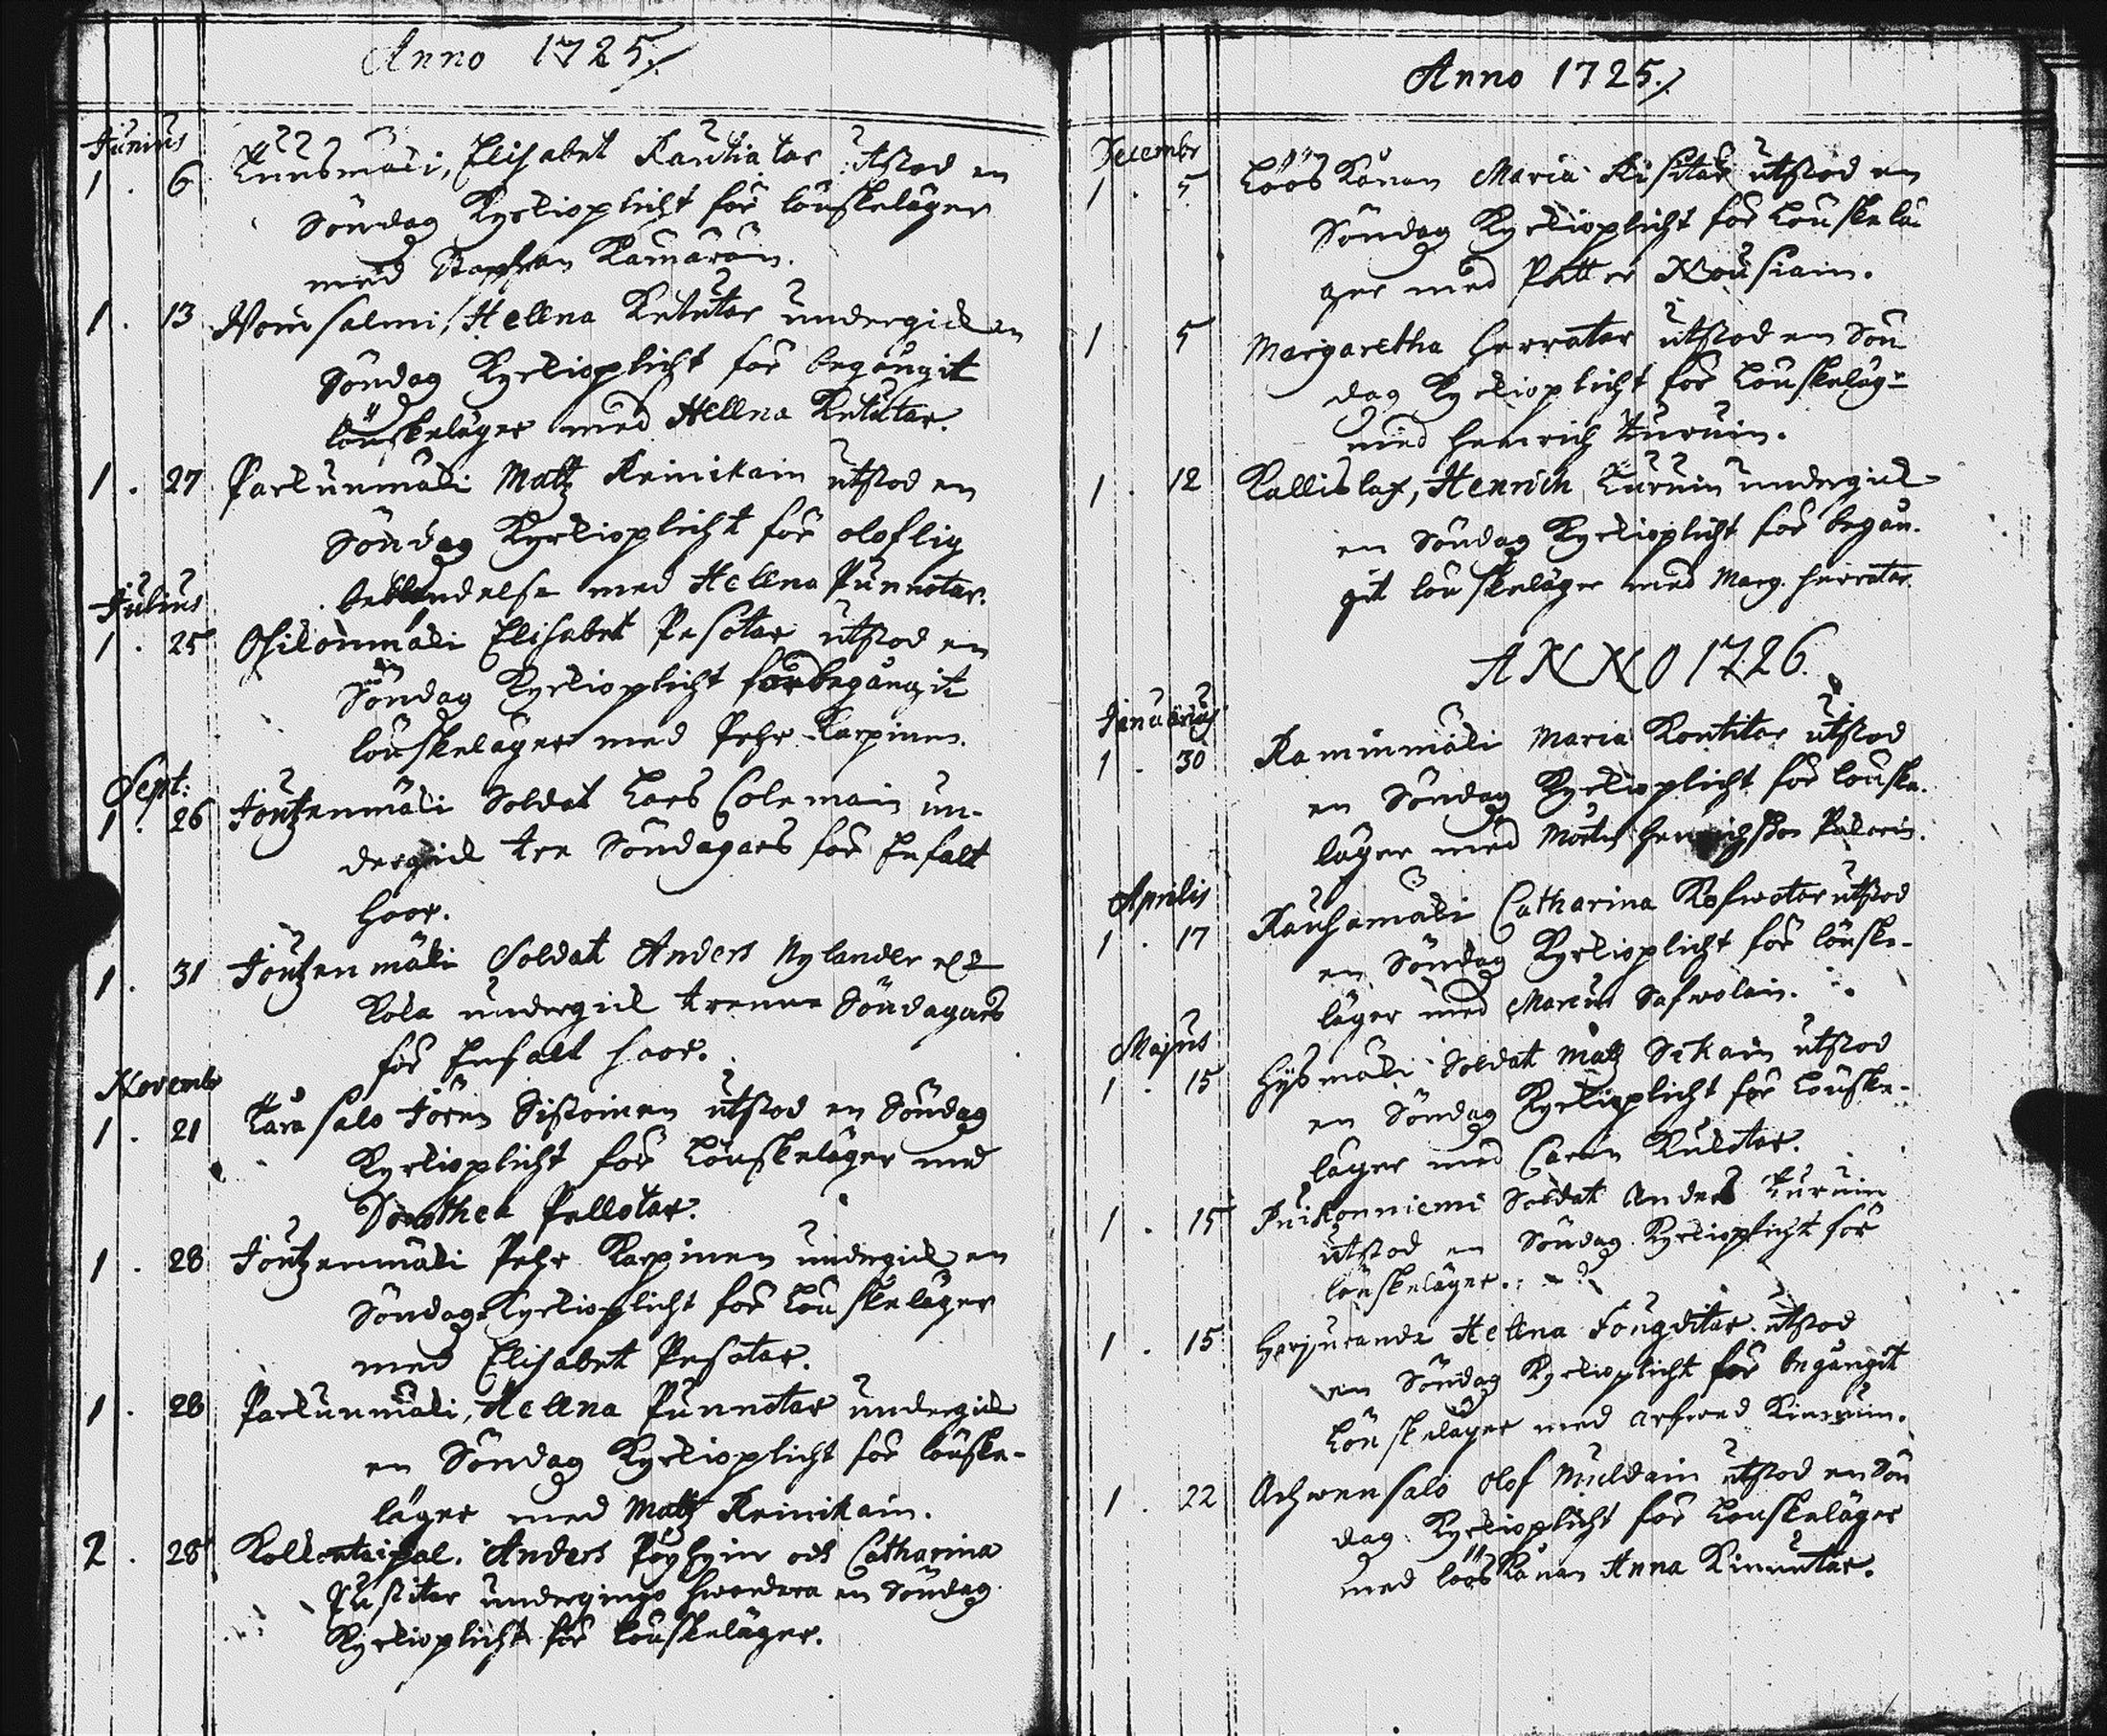 Anno 1725.
Junius
1 . 6 Kuusmäki, Elisabet Rautiatar utstod en
Söndag Kyrkioplicht för löuskeläger
med Staphan Kamärain.
1 . 13 Nouisalmi, Hellna Ketutar undergick en
Söndag Kyrkioplicht för begångit
löuskeläger med Hellna Ketutar.
1 . 27 Parkunmäki Mattz Reinikain utstod en
Söndag Kyrkioplicht för oloflig
beblandelse med Hellna Punnotar.
Julius
1 . 25 Osikonmäki Elisabet Pesotar utstod en
Söndag Kyrkioplicht för begångit
löuskeläger med Pehr Karpinen.
Sept:
1 . 26 Joutzenmäki Soldat Lars Colemain un-
dergick tre Söndagars för Enfalt
hoor.
1 . 31 Joutzenmäki Soldat Anders Nylander
Kola undergick trenne Söndagars
för Enfalt hoor.
Novembr
1 . 21 Karasalo Jören Sistoinen utstod en Söndag
Kyrkioplicht för Löuskeläger med
Dorothea Pellotar.
1 . 28 Joutzenmäki Pehr Karpinen undergick en
Söndags Kyrkioplicht för Löuskeläger
med Elisabet Pesotar.
1 . 28 Parkunmäki, Hellna Punnotar undergick
en Söndag Kyrkioplicht för löuske-
läger med Mattz Reinikain.
2 . 28 Kollontaipal. Anders Pöyhöin och Catharina
Pustitar undergingo hwardera en Söndag
Kyrkioplicht för Löuskeläger.
Anno 1725.
Decembr
1 . 5 Löös Kånan Maria Risitar utstod en
Söndag Kyrkioplicht för Löuskelä
ger med Petter Nousiain.
1 5 Margaretha Herratar utstod en Sön
dag Kyrkioplicht för Löuskeläg
med Henrich Kurvin.
1 . 12 Kallislax, Henrich Kurvin undergick
en Söndag Kyrkioplicht för begån-
git löuskeläger med Marg. Herratar.
ANNO 1726.
Januarius
1 . 30 Raminmäki Maria Kontitar utstod
en Söndag Kyrkioplicht för löuske-
läger med Mårten Henrichsson
Aprilis
1 . 17 Rauhamäki Catharina Koswotar utstod
en Söndag Kyrkioplicht för löuske-
läger med Marcus Safwolain.
Majus
1 . 15 Hysmäki Soldat Mattz Sikain utstod
en Söndag Kyrkioplicht för Löuske-
läger med Carin Kukotar.
1 . 15 Ruikonniemi Soldat Anders Kurvin
utstod en Söndag Kyrkioplicht för
löuskeläger.
1 . 15 Harjuranda Hellna Fougditar utstod
en Söndag Kyrkioplicht för begångit
Löuskeläger med Arfwed
1 . 22 Ahwensalo Olof Muldain utstod en Sön
dag Kyrkioplicht för Louskeläger
med löös Kånan Anna Kinnutar.